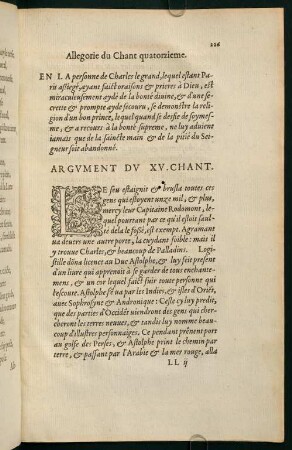 226
Allegorie du Chant quatorzieme.
EN LA personne de Charles le grand, lequel estant Pa
ris aßiegé, ayant faict oraisons & prieres à Dieu, est
miraculeusement aydé de la bonté diuine, & d'une se
crette & prompte ayde secouru, se demonstre la religi
on d'un bon prince, lequel quand se deffie de soymes-
me, & a recours à la bonté supreme, ne luy aduient
iamais que de la saincte main & de la pitié du Sei-
gneur soit abandonné.
ARGVMENT DV XV. CHANT.
LE feu estaignit & brusla toutes ces
gens qui estoyent unze mil, & plus,
mercy leur Capitaine Rodomont, le-
quel pourtant par ce qu'il estoit saulté
delà le fossé, est exempt. Agramant
ua deuers une autre porte, la cuydant foible: mais il
y trouue Charles, & beaucoup de Palladins. Logi-
stille dõna licence au Duc Astolphe, & luy feit present
d'un liure qui apprenoit à se garder de tous enchante-
mens, & un cor lequel faict fuir toute personne qui
l'escoute. Astolphe s'en ua par les Indies, & isles d'Oriët,
auec Sophrosyne & Andronique: Ceste cy luy predit,
que des parties d'Occidët uiendront des gens qui cher-
cheront les terres neuues, & tandis luy nomme beau-
coup d'illustres personnaiges. Ce pendant prënent port
au golfe des Perses, & Astolphe print le chemin par
terre, & passant par l'Arabie & la mer rouge, alla
LL ij